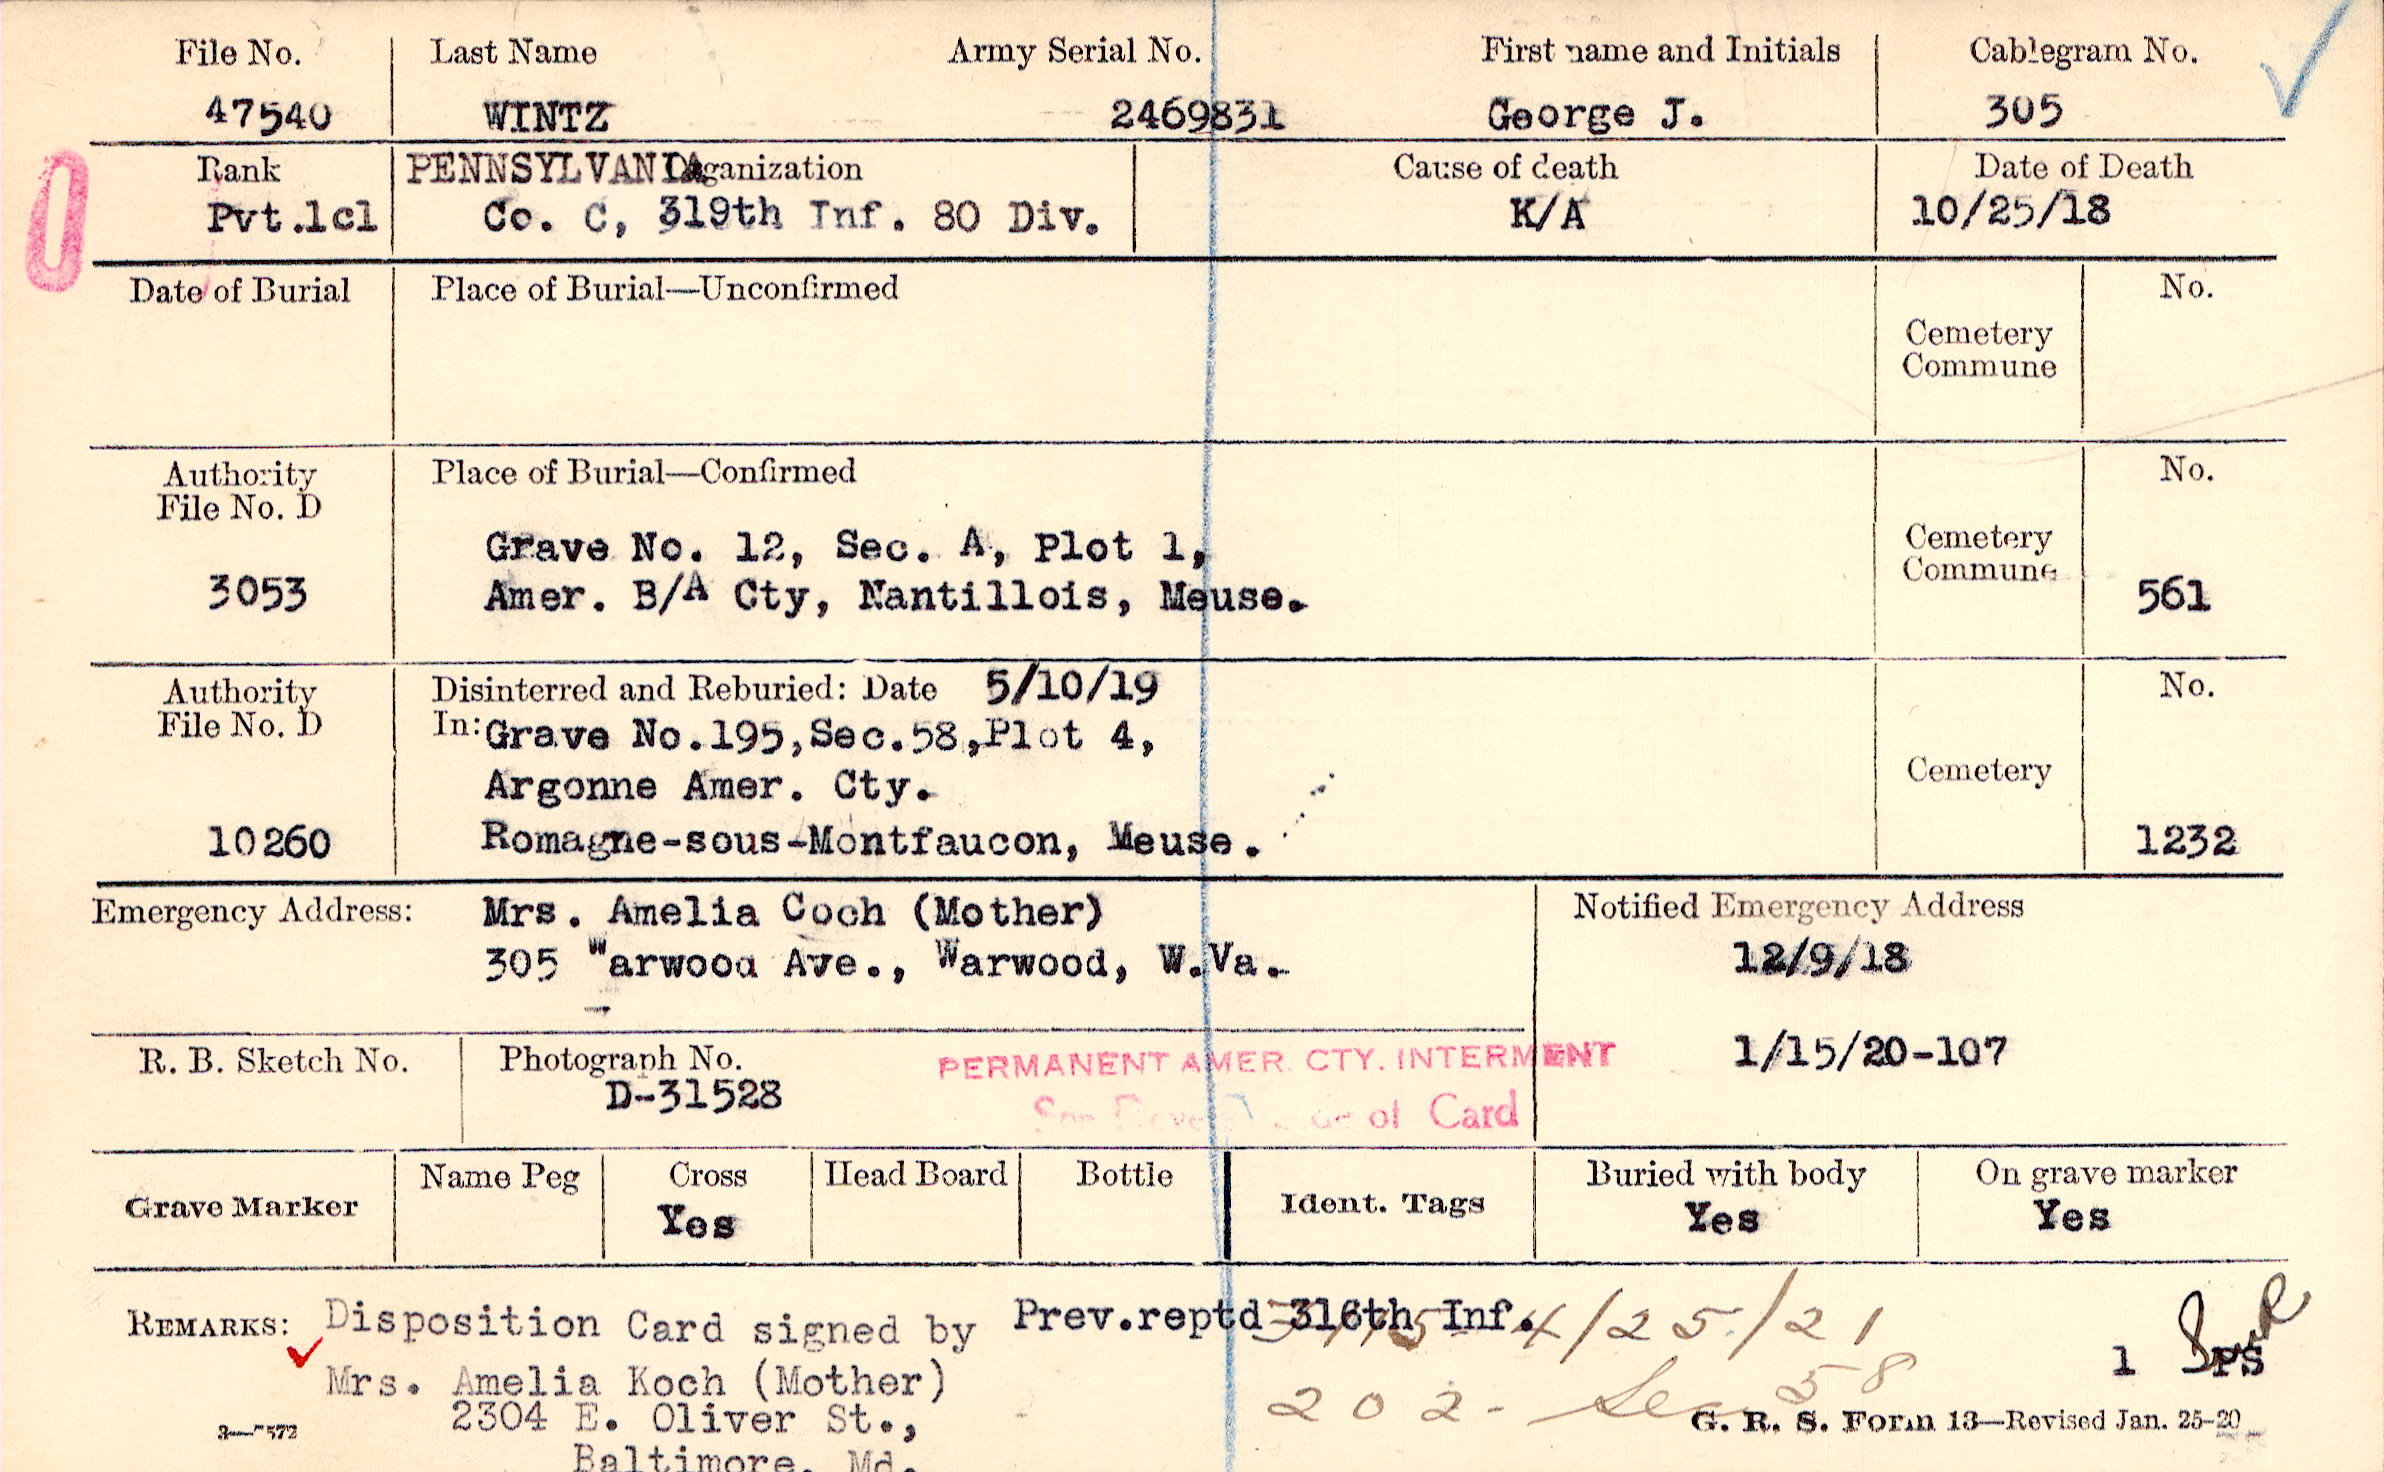 File No. Last Name Army Serial No. First name and Initials Cablegram No.
47540 WINTZ 2469831 George J. 305
Rank PENNSYLVANIA ganization Cause of death Date of Death
Pvt.1cl Co. C, 319th Inf. 80 Div. K/A 10/25/18
Date of Burial Place of Burial—Unconfirmed No.
Cemetery
Commune
Authority Place of Burial—Confirmed No.
File No. D
Grave No. 12, Sec. A, Plot 1, Cemetery
Commune
3053 Amer. B/A Cty, Nantillois, Meuse. 561
Authority Disinterred and Reburied: Date 5/10/19 No.
File No. D In: Grave No.195,Sec.58,Plot 4,
Argonne Amer. Cty. Cemetery
10260 Romagne-sous-Montfaucon, Meuse. 1232
Emergency Address: Mrs. Amelia Coch (Mother) Notified Emergency Address
305 Warwood Ave., Warwood, W.Va. 12/9/18
R. B. Sketch No. Photograph No. PERMANENT AMER. CTY. INTERMENT 1/15/20-107
D-31528 of Card
Grave Marker Name Peg Cross Head Board Bottle Ident. Tags Buried with body On grave marker
Yes Yes Yes
REMARKS: Disposition Card signed by Prev.reptd 316th Inf. 4/25/21
Mrs. Amelia Koch (Mother) 1 PS
2304 E. Oliver St., 202- Sec 58
3—7572 G. R. S. Form 13—Revised Jan. 25-20
Baltimore, Md.